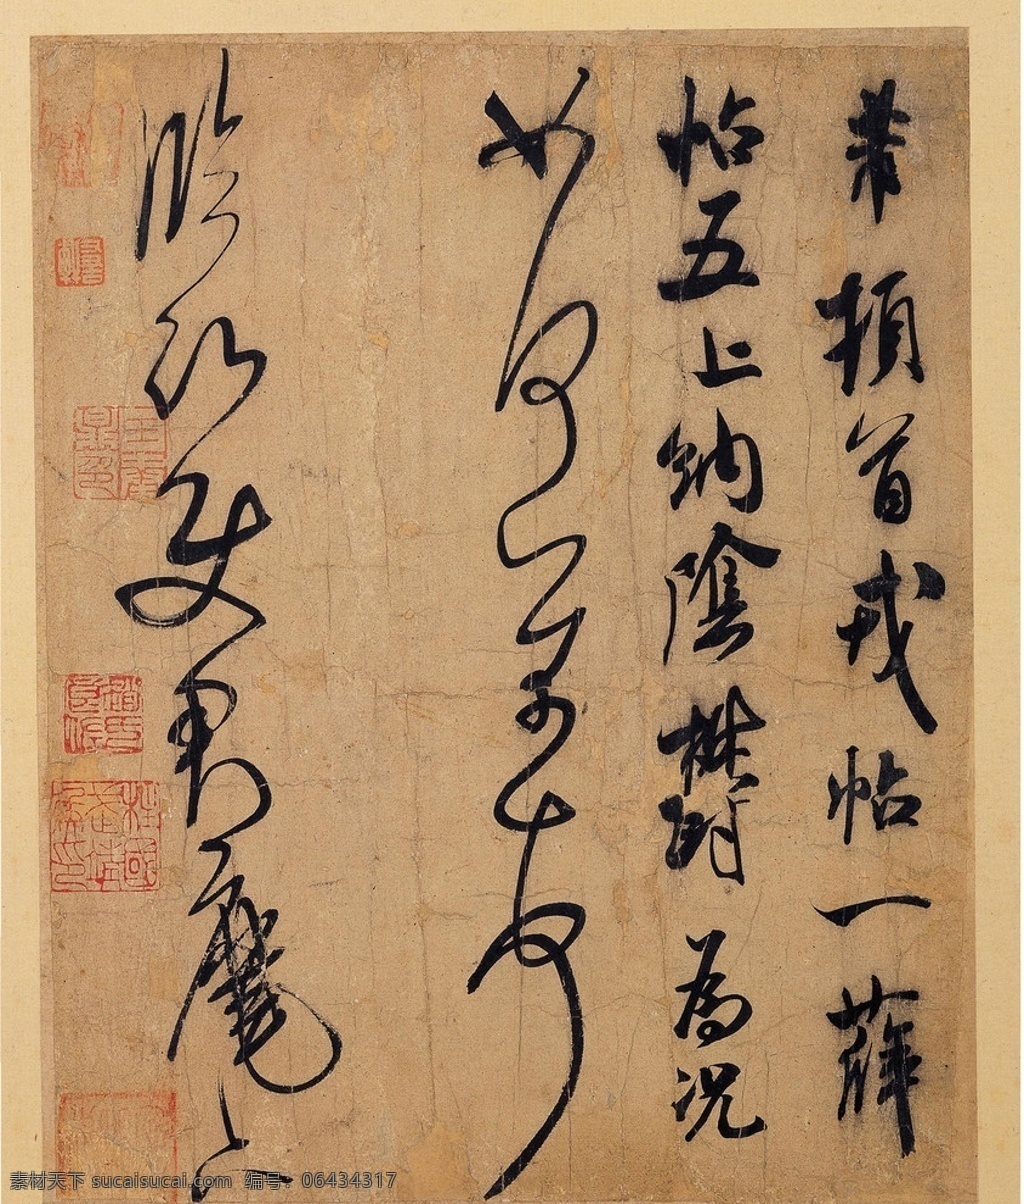 芾頓首戎帖一薛
帖五上納陰鬱為況
如何芾頓首
臨沂使君麾下
素材天下 sucaisucai.com 编号：06434317